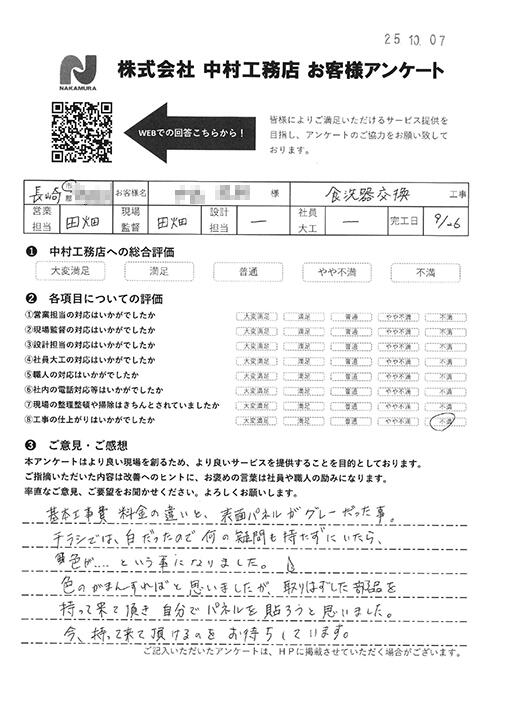 25 10. 07
NAKAMURA
株式会社 中村工務店 お客様アンケート
WEBでの回答こちらから！
皆様によりご満足いただけるサービス提供を
目指し、アンケートのご協力をお願い致して
おります。
長崎 市 郡 お客様名 様 食洗器交換 工事
営業担当 田畑 現場監督 田畑 設計担当 ― 社員大工 ― 完工日 9/26
❶ 中村工務店への総合評価
大変満足 満足 普通 やや不満 不満
❷ 各項目についての評価
①営業担当の対応はいかがでしたか 大変満足 満足 普通 やや不満 不満
②現場監督の対応はいかがでしたか 大変満足 満足 普通 やや不満 不満
③設計担当の対応はいかがでしたか 大変満足 満足 普通 やや不満 不満
④社員大工の対応はいかがでしたか 大変満足 満足 普通 やや不満 不満
⑤職人の対応はいかがでしたか 大変満足 満足 普通 やや不満 不満
⑥社内の電話対応等はいかがでしたか 大変満足 満足 普通 やや不満 不満
⑦現場の整理整頓や掃除はきちんとされていましたか 大変満足 満足 普通 やや不満 不満
⑧工事の仕上がりはいかがでしたか 大変満足 満足 普通 やや不満 不満
❸ ご意見・ご感想
本アンケートはより良い現場を創るため、より良いサービスを提供することを目的としております。
ご指摘いただいた内容は改善へのヒントに、お褒めの言葉は社員や職人の励みになります。
率直なご意見、ご要望をお聞かせください。よろしくお願いします。
基本工事費 料金の違いと、表面パネルがグレーだった事。
チラシでは、白だったので何の疑問も持たずにいたら、
色が.... という事になりました。
色のがまんすればと思いましたが、取りはずした部品を
持って来て頂き 自分でパネルを貼ろうと思いました。
今、持って来て頂けるのをお待ちしています。
ご記入いただいたアンケートは、HPに掲載させていただく場合がございます。